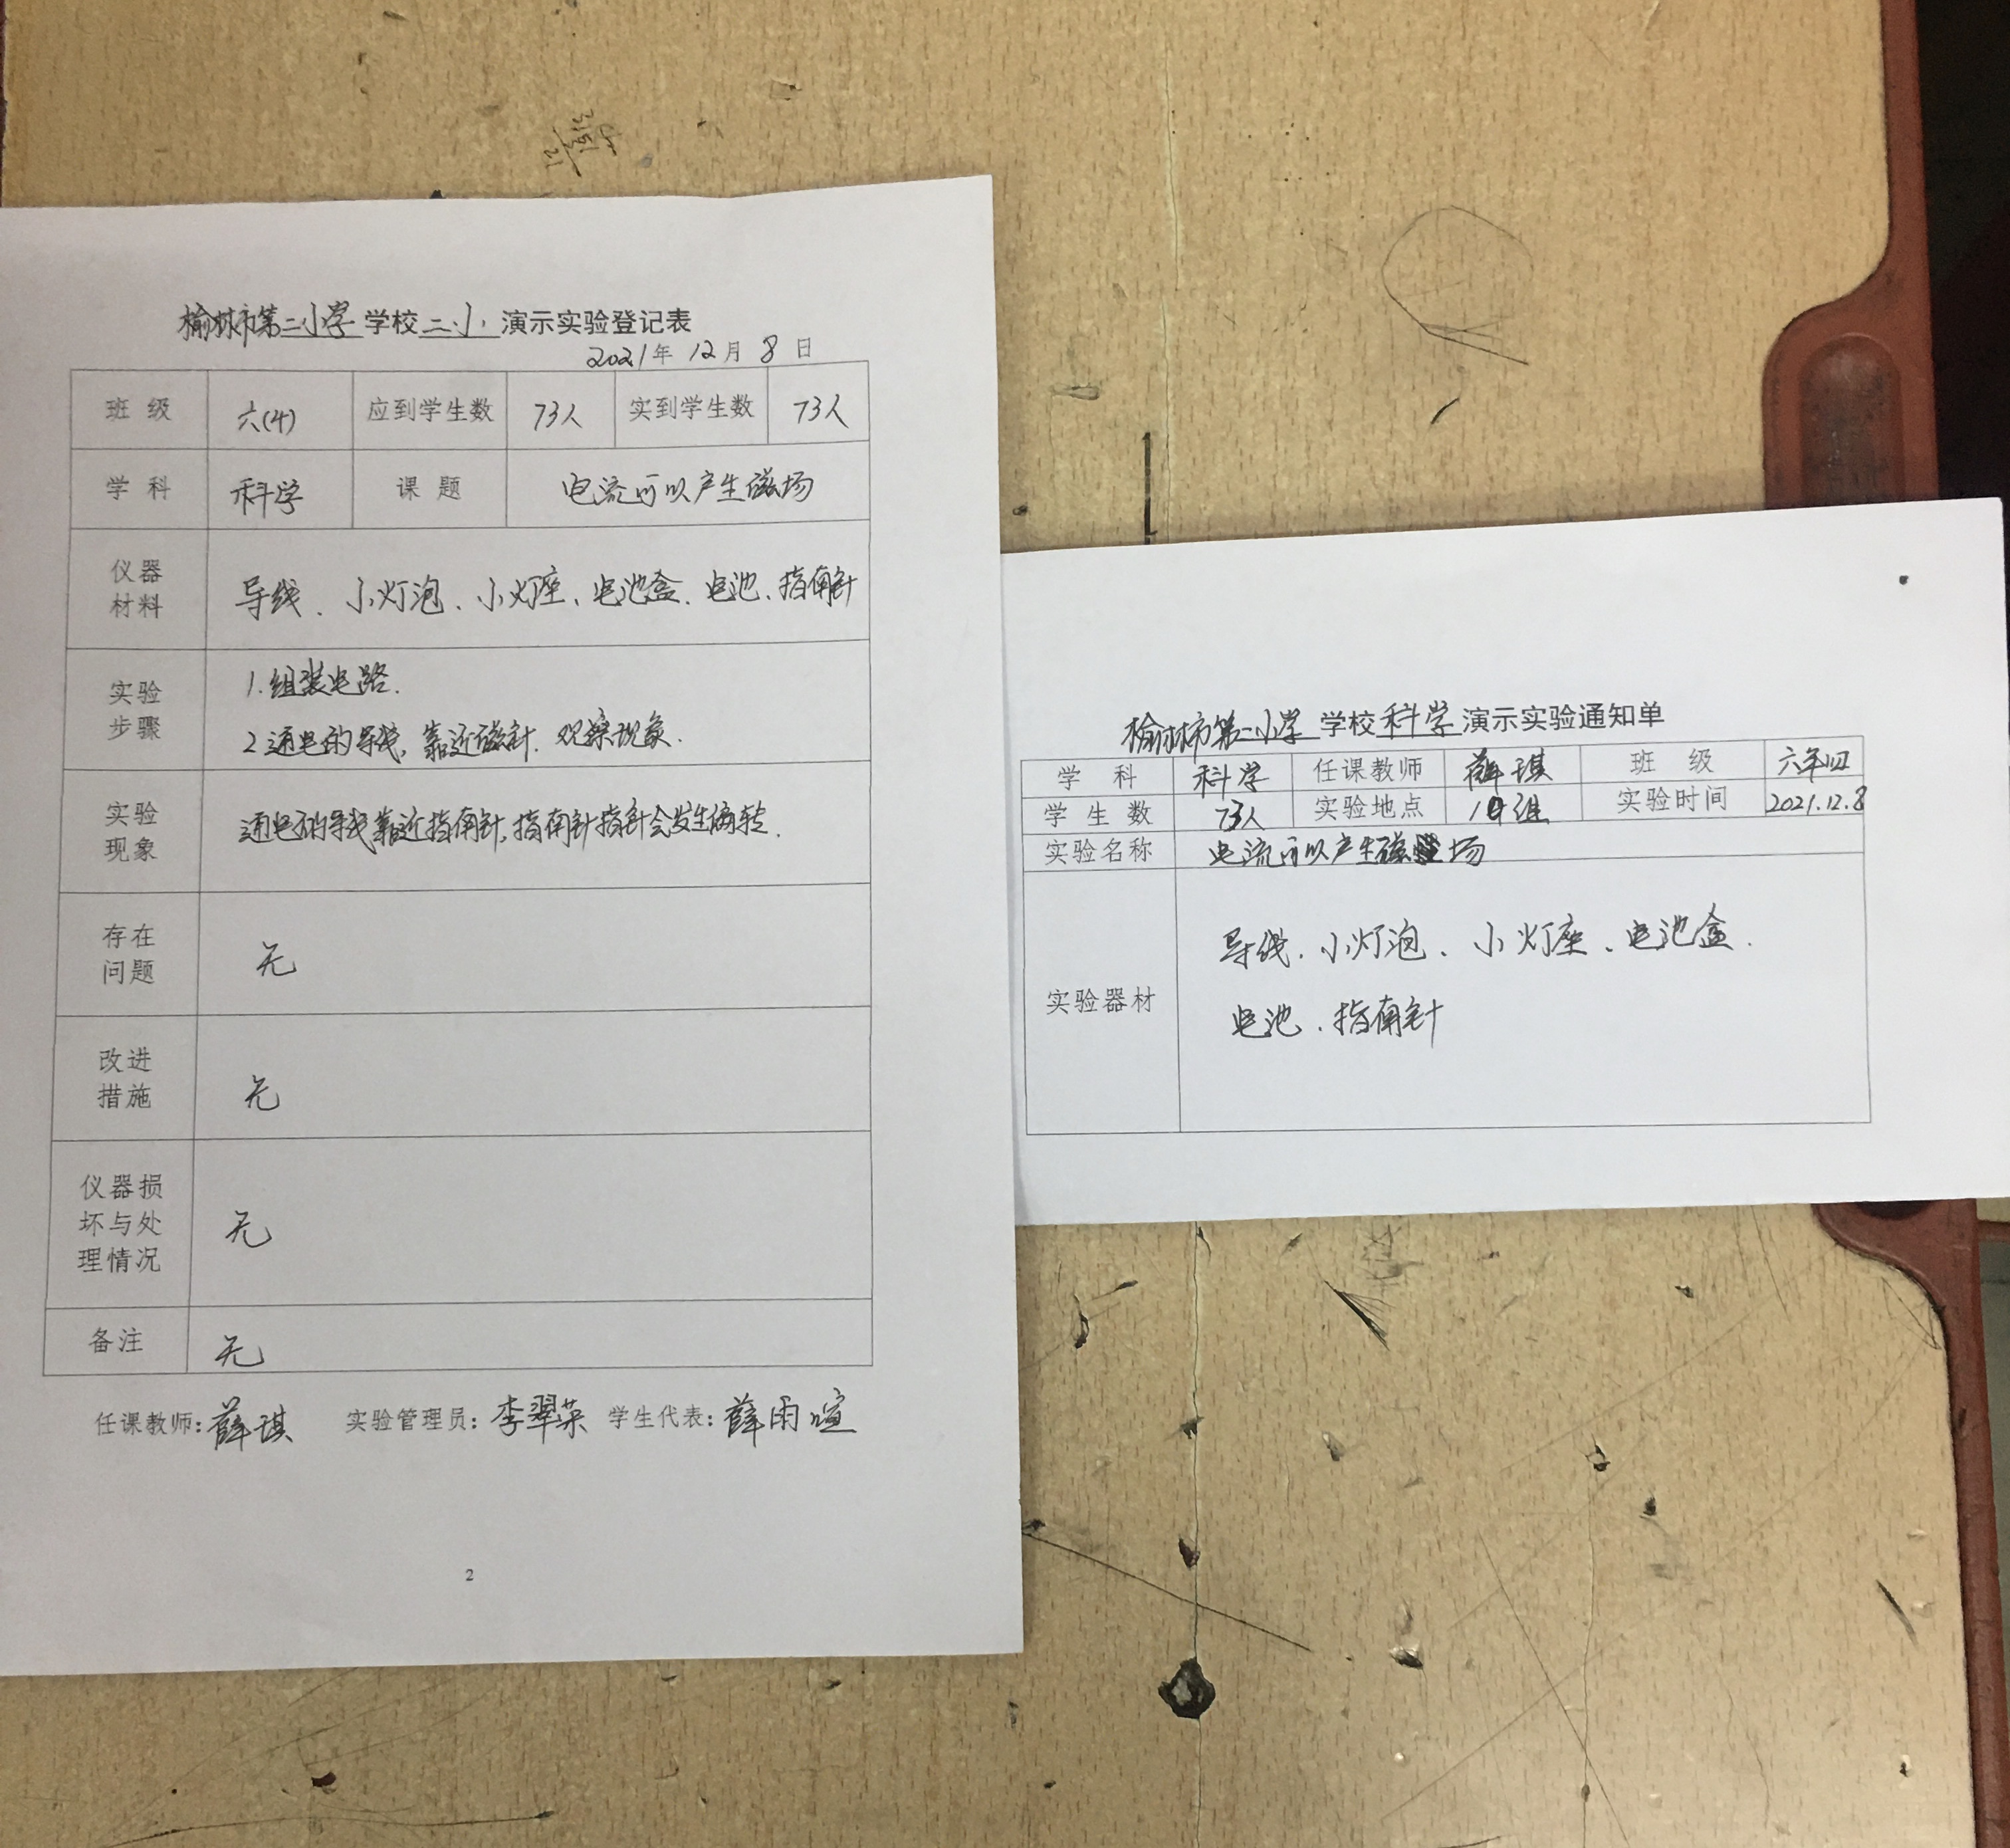 榆林市第二小学学校二小演示实验登记表
2021年 12月 8日
班级 六(4) 应到学生数 73人 实到学生数 73人
学科 科学 课题 电流可以产生磁场
仪器
材料
导线、小灯泡、小灯座、电池盒、电池、指南针
实验
步骤
1.组装电路.
2.通电的导线,靠近磁针.观察现象.
实验
现象
通电的导线靠近指南针,指南针指针会发生偏转.
存在
问题
无
改进
措施
无
仪器损
坏与处
理情况
无
备注 无
任课教师:薛琪 实验管理员:李翠英 学生代表:薛雨暄
2
榆林市第二小学学校科学演示实验通知单
学科 科学 任课教师 薛琪 班级 六年四
学生数 73人 实验地点 组 实验时间 2021.12.8
实验名称 电流可以产生磁场
实验器材
导线、小灯泡、小灯座、电池盒.
电池、指南针